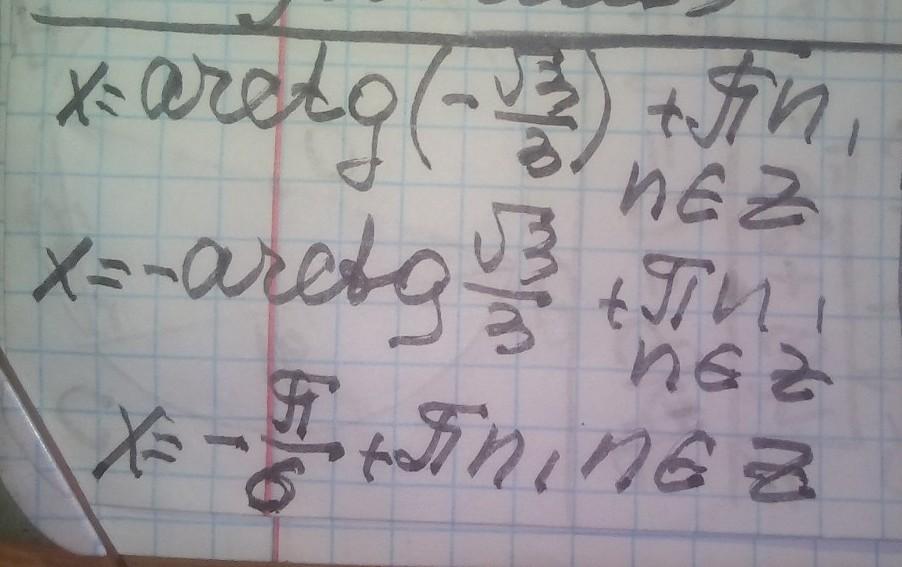 x = arctg(-√3/3) + πn,
n ∈ Z
x = -arctg √3/3 + πn,
n ∈ Z
x = -π/6 + πn, n ∈ Z